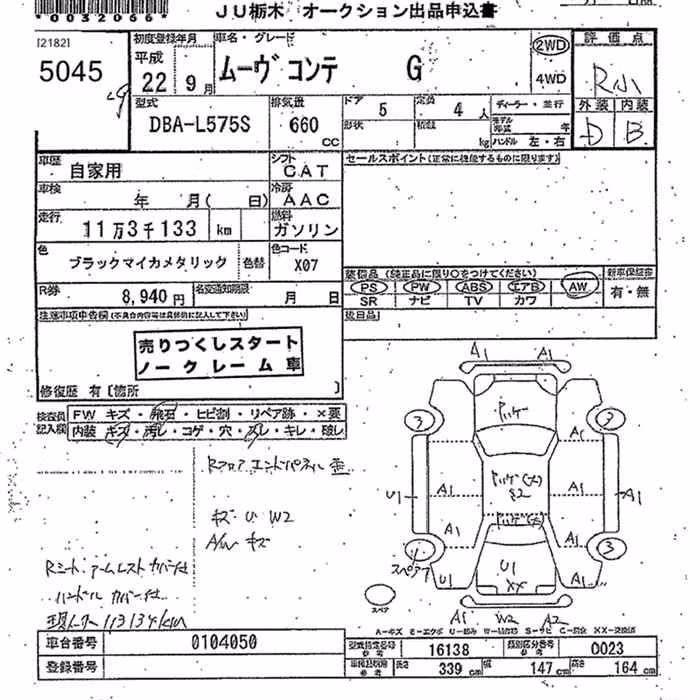 *0032066*
JU栃木 オークション出品申込書
[2182]
5045
初度登録年月
平成
22 9月
車名・グレード
ムーヴ コンテ G
2WD
4WD
評価点
R小
外装 内装
D B
型式
DBA-L575S
排気量
660 cc
ドア 5
定員 4 人
形状
積載 kg
ディーラー・並行
モデル 年
ハンドル 左・右
車歴
自家用
シフト
CAT
セールスポイント(正常に機能するものに限ります)
車検
年 月( 日)
冷房
AAC
走行
11万3千133 km
燃料
ガソリン
色
ブラックマイカメタリック
色替
色コード
X07
装備品(純正品に限り○をつけてください)
PS PW ABS エアB AW
SR ナビ TV カワ
新車保証書
有・無
R券
8,940円
名変通知期限
月 日
後日品
注意事項申告欄(不具合内容等は具体的に記入して下さい)
売りつくしスタート
ノークレーム車
修復歴 有[箇所 ]
検査員
記入欄
FW キズ・飛石・ヒビ割・リペア跡・×要
内装 キズ・汚レ・コゲ・穴・スレ・キレ・破レ
Rフロア エンドパネル 歪
キズ・U W2
A/W キズ
Rシート・アームレスト カバー付
ハンドル カバー付
現メーター 113134km
A1 A1
ハゲ
3 3
A1
ハゲ(大)
S2
U1 A1 A1 A1
ハゲ(大)
A1 A1
3
スペア
U1 U1 A1
XX
スペア
A1 W2 A2
A-キズ E-エクボ U-凹み W-補修跡 S-サビ C-腐食 XX-交換済
車台番号 0104050
登録番号
型式指定番号 16138
類別区分番号 0023
車検証参考 長さ 339 cm 幅 147 cm 高さ 164 cm